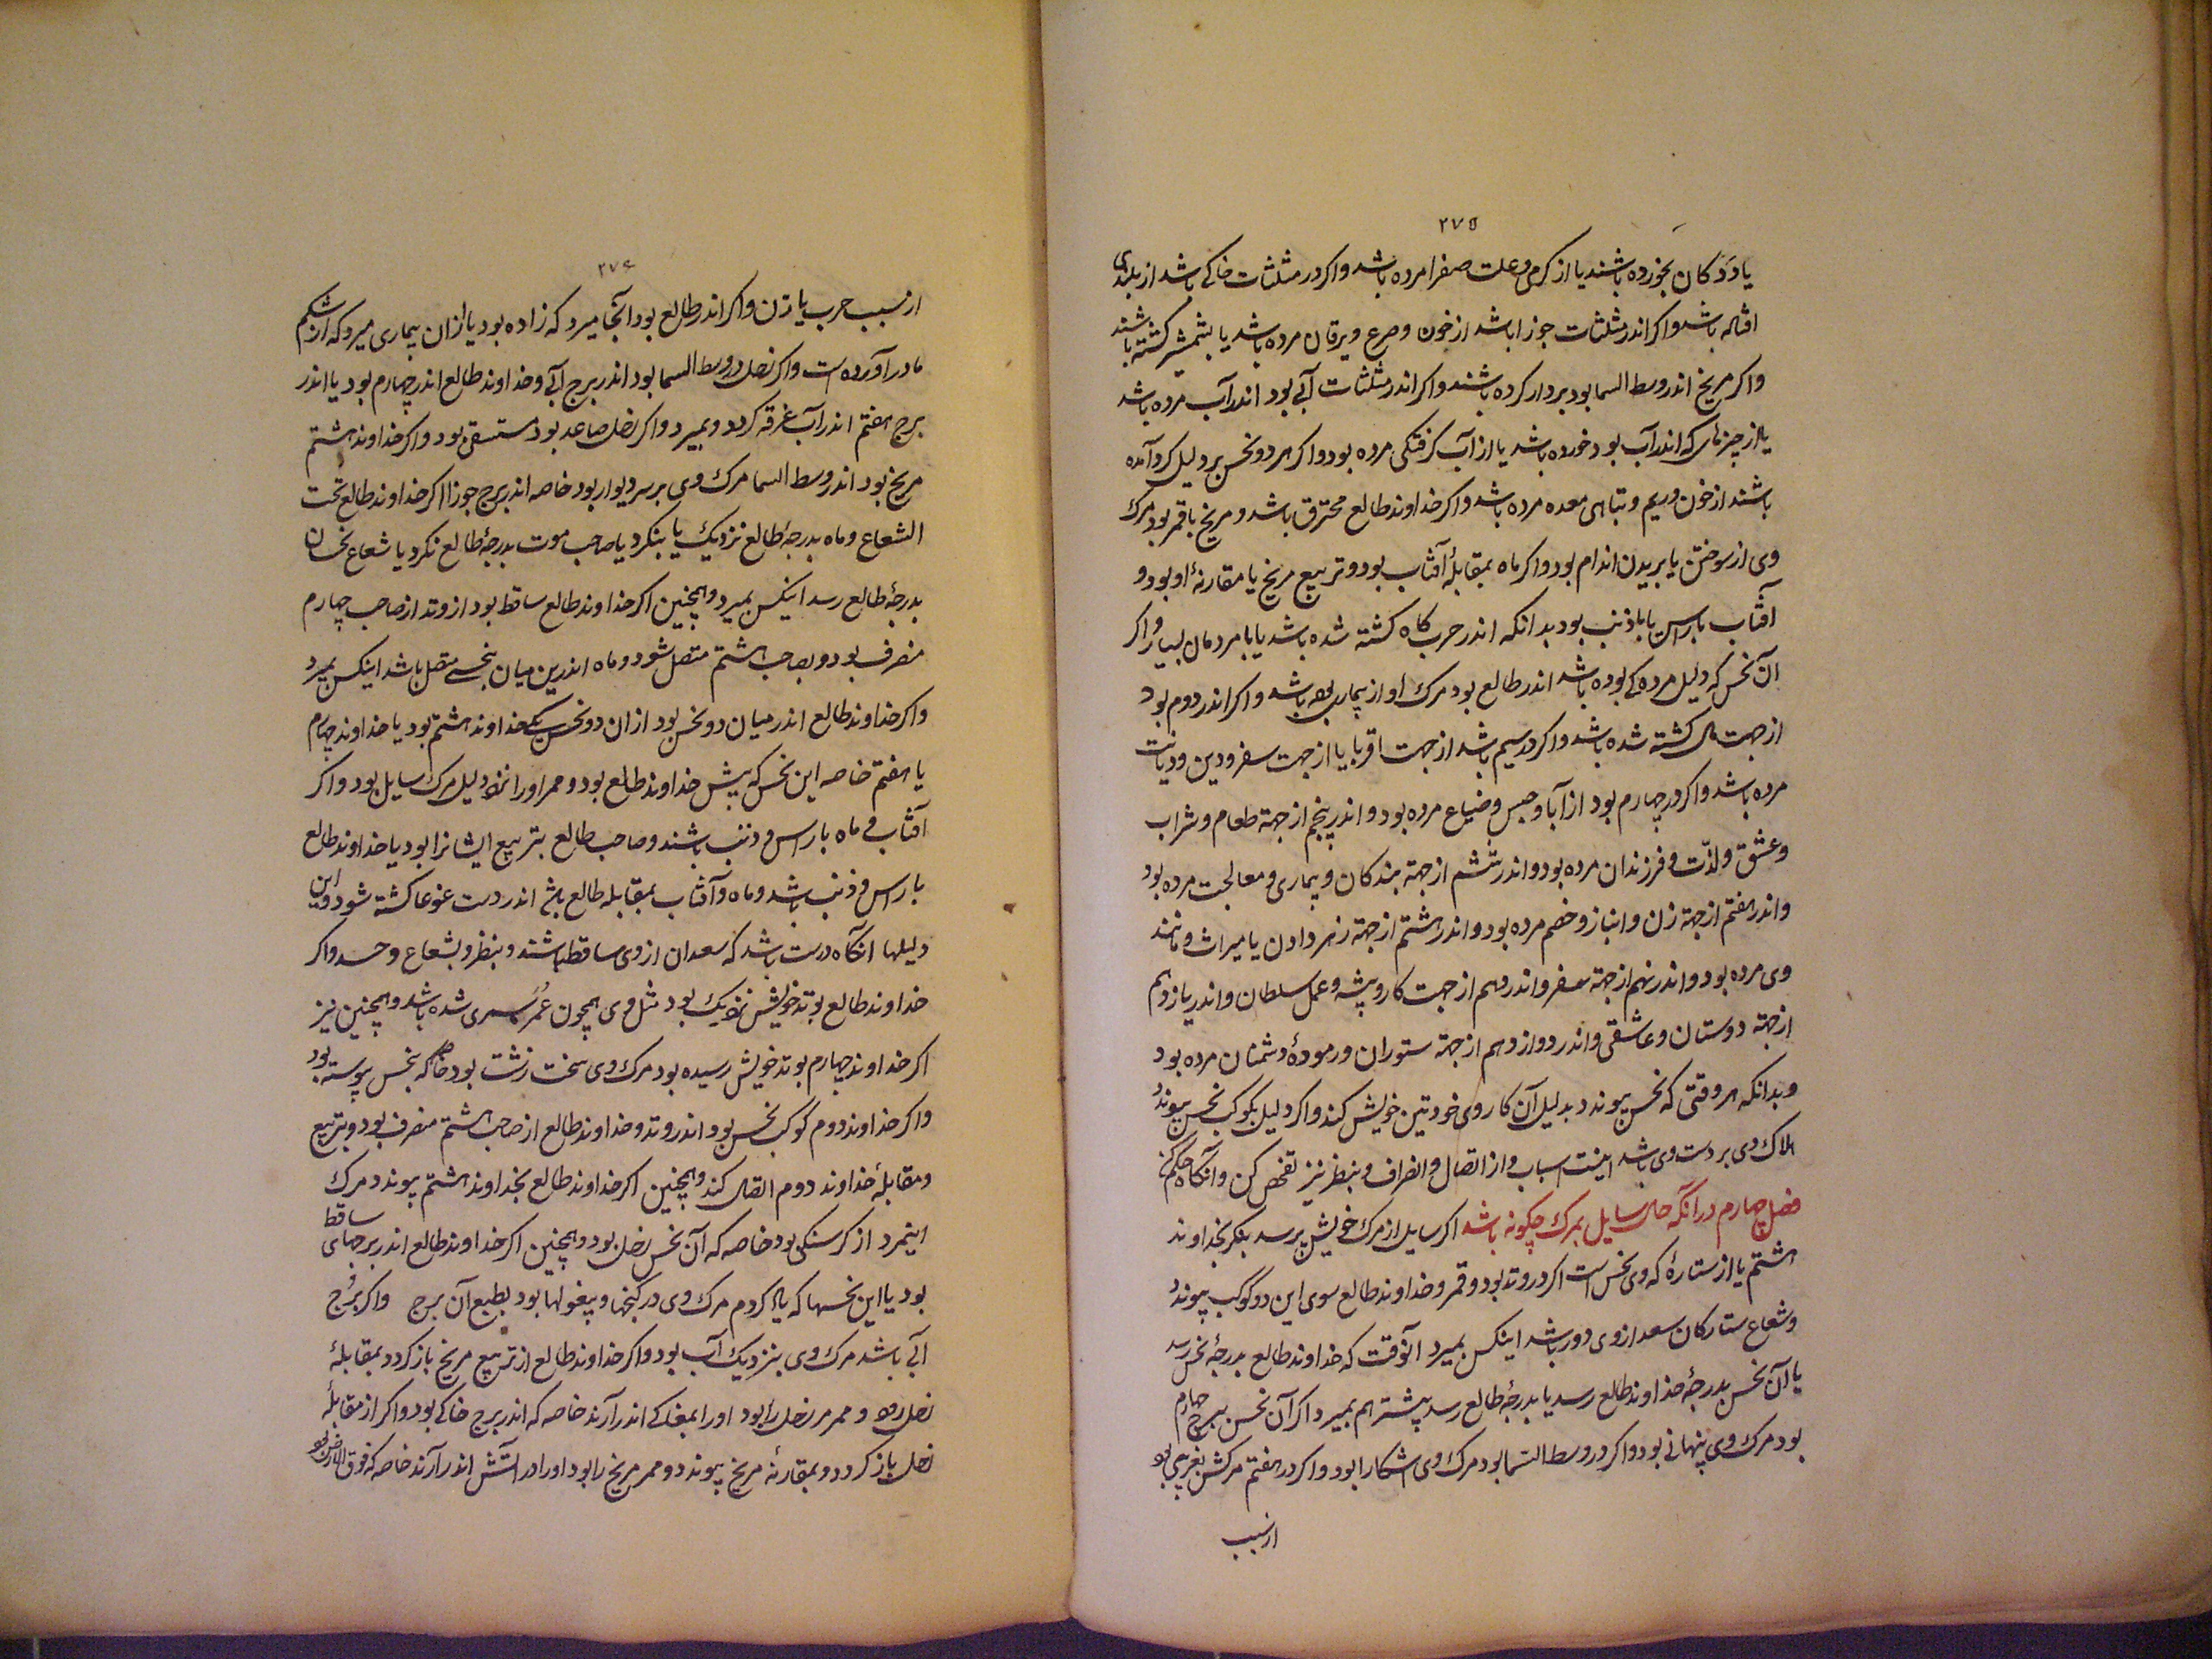 ۲۷۵
یا ددگان بخورده باشند یا از گرمی و علت صفرا مرده باشد واکر در مثلثات خاکی باشد از بلندی
افتاده باشد واکر اندر مثلثات جوزا باشد از خون و صرع و یرقان مرده باشد یا بشمشیر کشته باشند
واکر مریخ اندر وسط السما بود بردار کرده باشند واکر اندر مثلثات آبی بود اندر آب مرده باشد
یا از چیزهای که اندر آب بود خورده باشد یا از آب گرفتگی مرده بود واکر هر دو نحس بر دلیل گرد آمده
باشند از خون و ریم و تباهی معده مرده باشد واکر خداوند طالع محترق باشد و مریخ با قمر بود مرک
وی از سوختن یا بریدن اندام بود واکر ماه بمقابلهٔ آفتاب بود و تربیع مریخ یا مقارنهٔ او بود و
آفتاب با راس یا با ذنب بود بدانکه اندر حرب کاه کشته شده باشد یا با مردمان بسیار واکر
آن نحس که دلیل مردگی بوده باشد اندر طالع بود مرک او از بیماری بوده باشد واکر اندر دوم بود
از جهت مال کشته شده باشد واکر در سیم باشد از جهت اقربا یا از جهت سفر و دین و دیانت
مرده باشد واکر در چهارم بود از آبا و حبس و ضیاع مرده بود و اندر پنجم از جهة طعام و شراب
و عشق و لذت و فرزندان مرده بود و اندر ششم از جهة بندکان و بیماری و معالجت مرده بود
و اندر هفتم از جهة زن و انباز و خصم مرده بود و اندر هشتم از جهة زهر دادن یا میراث و مانند
وی مرده بود و اندر نهم از جهة سفر و اندر دهم از جهت کار و پیشه و عمل سلطان و اندر یازدهم
از جهة دوستان و عاشقی و اندر دوازدهم از جهة ستوران و رمودهٔ دشمنان مرده بود
و بدانکه هر وقتی که نحس پیوندد بدلیل آن کار وی خود بتن خویش کند واکر دلیل بکوکب نحس پیوندد
هلاک وی بر دست وی باشد اینست اسباب و از اتصال و انصراف و بنظر نیز تفحص کن و آنگاه حکم کن
فصل چهارم در آنکه حال سایل بمرک چکونه باشد اکر سایل از مرک خویش پرسد بنکر بخداوند
هشتم یا از ستارهٔ که وی نحس است اکر در وتد بود و قمر و خداوند طالع سوی این دو کوکب پیوندد
و شعاع ستارکان سعد از وی دور باشد اینکس بمیرد آنوقت که خداوند طالع بدرجهٔ نحس رسد
یا آن نحس بدرجهٔ خداوند طالع رسد یا بدرجهٔ طالع رسد پیشتر هم بمیرد اکر آن نحس ببرج چهارم
بود مرک وی پنهانی بود واکر در وسط السما بود مرک وی آشکارا بود واکر در هفتم مرکش بغریبی بود
از سبب
۲۷۶
از سبب حرب یا زن واکر اندر طالع بود آنجا میرد که زاده بود یا از آن بیماری میرد که از شکم
مادر آورده است واکر زحل در وسط السما بود اندر برج آبی و خداوند طالع اندر چهارم بود یا اندر
برج هفتم اندر آب غرقه کردد و بمیرد واکر زحل صاعد بود مستسقی بود واکر خداوند هشتم
مریخ بود اندر وسط السما مرک وی بر سر دیوار بود خاصه اندر برج جوزا اکر خداوند طالع تحت
الشعاع و ماه بدرجهٔ طالع نزدیک یا بنکرد یا صاحب موت بدرجهٔ طالع نکرد یا شعاع نحسان
بدرجهٔ طالع رسد اینکس بمیرد و همچنین اکر خداوند طالع ساقط بود از وتد از صاحب چهارم
منصرف بود و بصاحب هشتم متصل شود و ماه اندرین میان بنحسی متصل باشد اینکس بمیرد
واکر خداوند طالع اندر میان دو نحس بود از ان دو نحس یکی خداوند هشتم بود یا خداوند چهارم
یا هفتم خاصه این نحس که پیش خداوند طالع بود و ممر او را بود دلیل مرک سایل بود واکر
آفتاب و ماه با راس و ذنب باشند و صاحب طالع بتربیع ایشانرا بود یا خداوند طالع
با راس و ذنب باشد و ماه و آفتاب بمقابله طالع باشد اندر دست غوغا کشته شود و این
دلیلها آنکاه درست باشد که سعدان از وی ساقط باشند و بنظر و بشعاع و جسد واکر
خداوند طالع بوتد خویش نزدیک بود مثل وی همچون عمر سپری شده باشد و همچنین نیز
اکر خداوند چهارم بوتد خویش رسیده بود مرک وی سخت زشت بود خاصه که بنحس پیوسته بود
واکر خداوند دوم کوکب نحس بود اندر وتد و خداوند طالع از صاحب هشتم منصرف بود و بتربیع
و مقابلهٔ خداوند دوم اتصال کند و همچنین اکر خداوند طالع بخداوند هشتم پیوندد مرک
اینمرد از کرسنکی بود خاصه که آن نحس زحل بود و همچنین اکر خداوند طالع اندر برجهای ساقط
بود یا این نحسها که یاد کردم مرک وی در کنجها و پیغولها بود بطبع آن برج واکر برج
آبی باشد مرک وی بنزدیک آب بود واکر خداوند طالع از تربیع مریخ باز کردد بمقابلهٔ
زحل رود و ممر مر زحل را بود او را بمغاکی اندر آرند خاصه که اندر برج خاکی بود واکر از مقابلهٔ
زحل باز کردد و بمقارنهٔ مریخ پیوندد و ممر مریخ را بود او را در آتش اندر آرند خاصه که فوق الارض بود